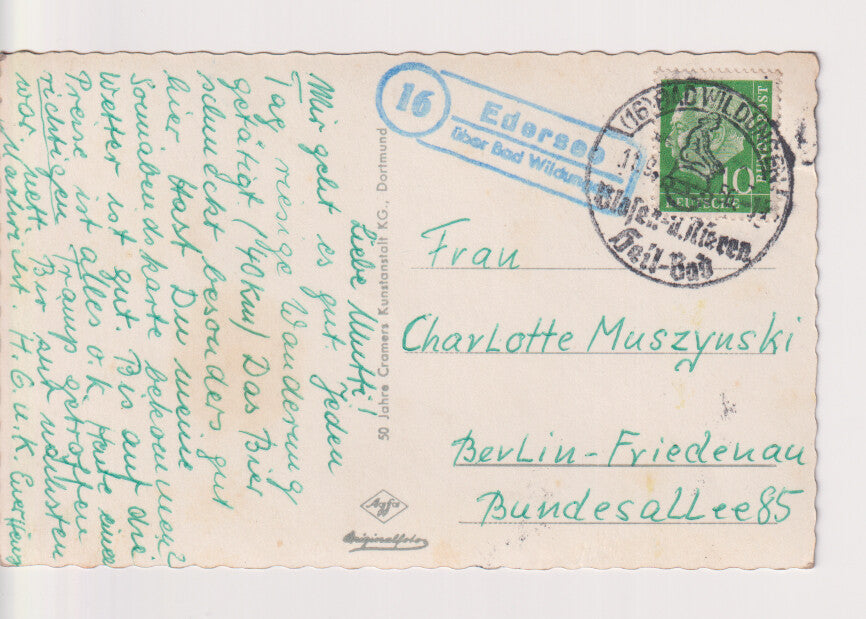 Liebe Mutti!
Mir geht es gut. Jeden
Tag riesige Wanderung
getätigt (40 Km) Das Bier
schmeckt besonders gut
hier Hast Du meine
Sonnabendskarte bekommen?
Wetter ist gut. Bis auf die
Preise ist alles o.k. Heute einen
richtigen Tramp getroffen
war nett. Bis zur nächsten
Antwort. H. G. u. K.
50 Jahre Cramers Kunstanstalt KG., Dortmund
Agfa
Originalfoto
16
Edersee
über Bad Wildungen
(16) BAD WILDUNGEN
Blasen- u. Nieren
Heil-Bad
10
DEUTSCHE
POST
Frau
Charlotte Muszynski
Berlin-Friedenau
Bundesallee 85